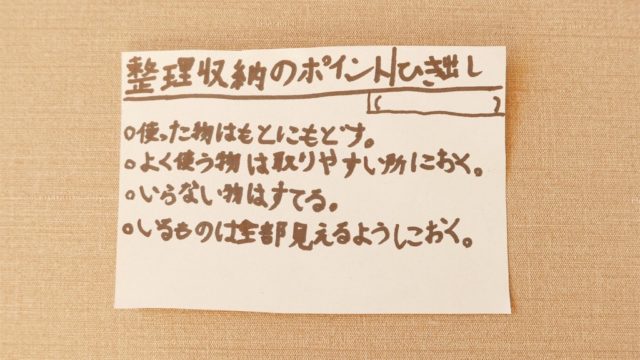 整理収納のポイント ひき出し
( )
○使った物はもとにもどす。
○よく使う物は取りやすい所におく。
○いらない物はすてる。
○いるものは全部見えるようにおく。